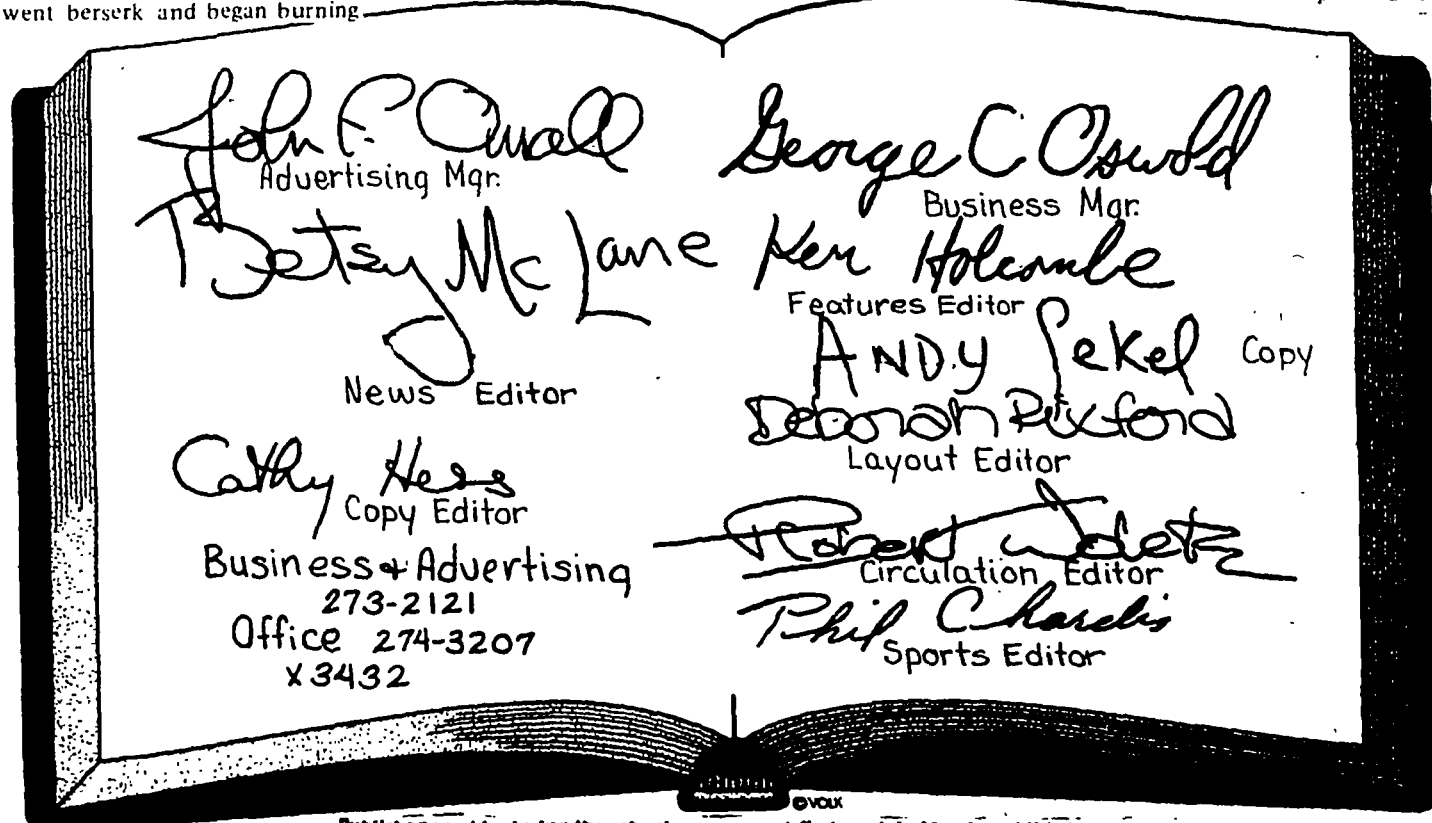 went berserk and began burning
John F.
Advertising Mgr.
Betsy McLane
News Editor
Cathy Hess
Copy Editor
Business & Advertising
273-2121
Office 274-3207
x3432
George C Oswald
Business Mgr.
Ken Holcombe
Features Editor
ANDY Sekel Copy
Deborah Pixford
Layout Editor
Robert
Circulation Editor
Phil
Sports Editor
©VOLK